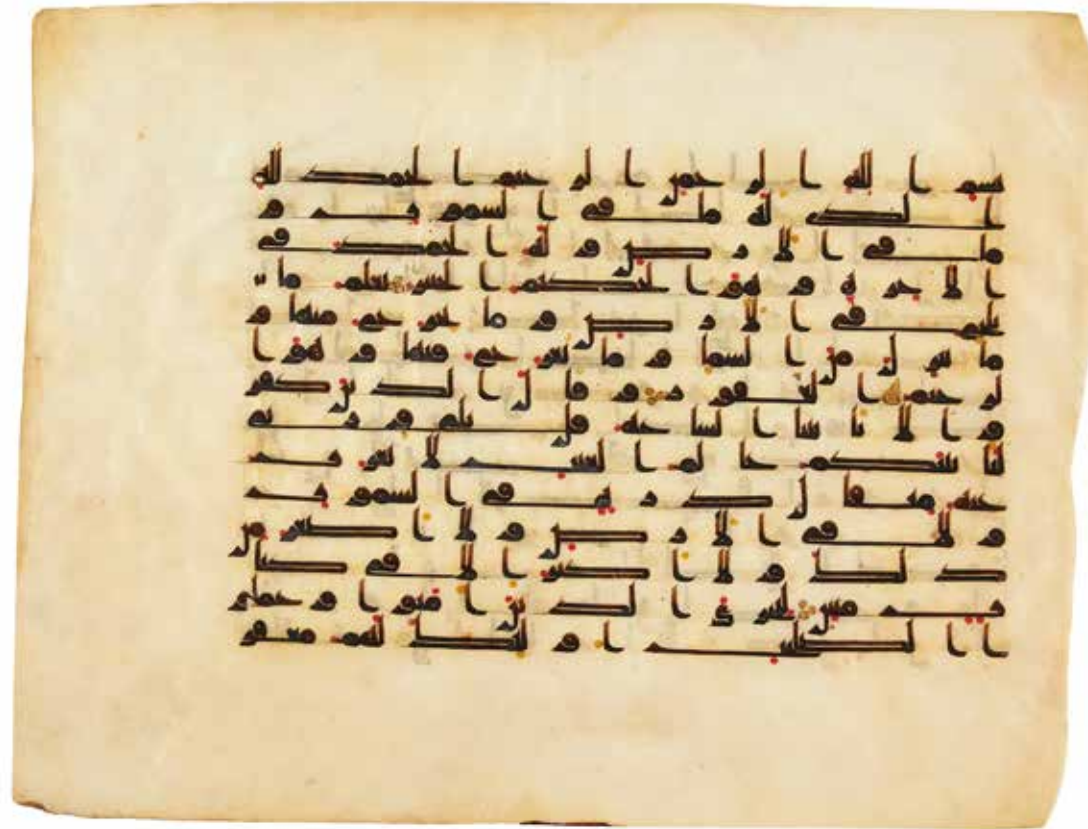 بسم الله الرحمن الرحيم الحمد لله
الذي له ما في السموت و
ما في الارض و له الحمد في
الاخرة و هو الحكيم الخبير يعلم ما
يلج في الارض و ما يخرج منها و
ما ينزل من السما و ما يعرج فيها و هو ا
لرحيم الغفور و قال الذين كفر
وا لا تاتينا الساعة قل بلى و ربي
لتاتينكم عالم الغيب لا يعزب
عنه مثقال ذرة في السموت
و لا في الارض و لا اصغر من
ذلك و لا اكبر الا في كتا
ب مبين ليجزي الذين امنوا و عملو
ا الصلحت اولئك لهم مغفر